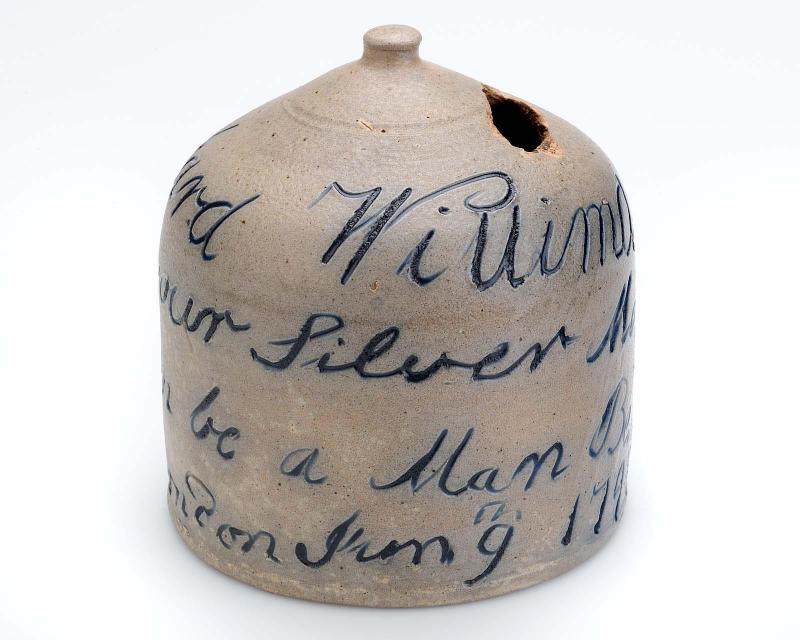 ard Willims
our Silver M
n be a Man B
ondon Jun 9 178